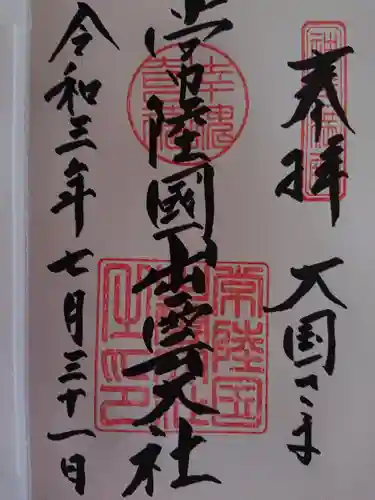 奉拝
大国さま
常陸國出雲大社
令和三年七月三十一日
常陸国